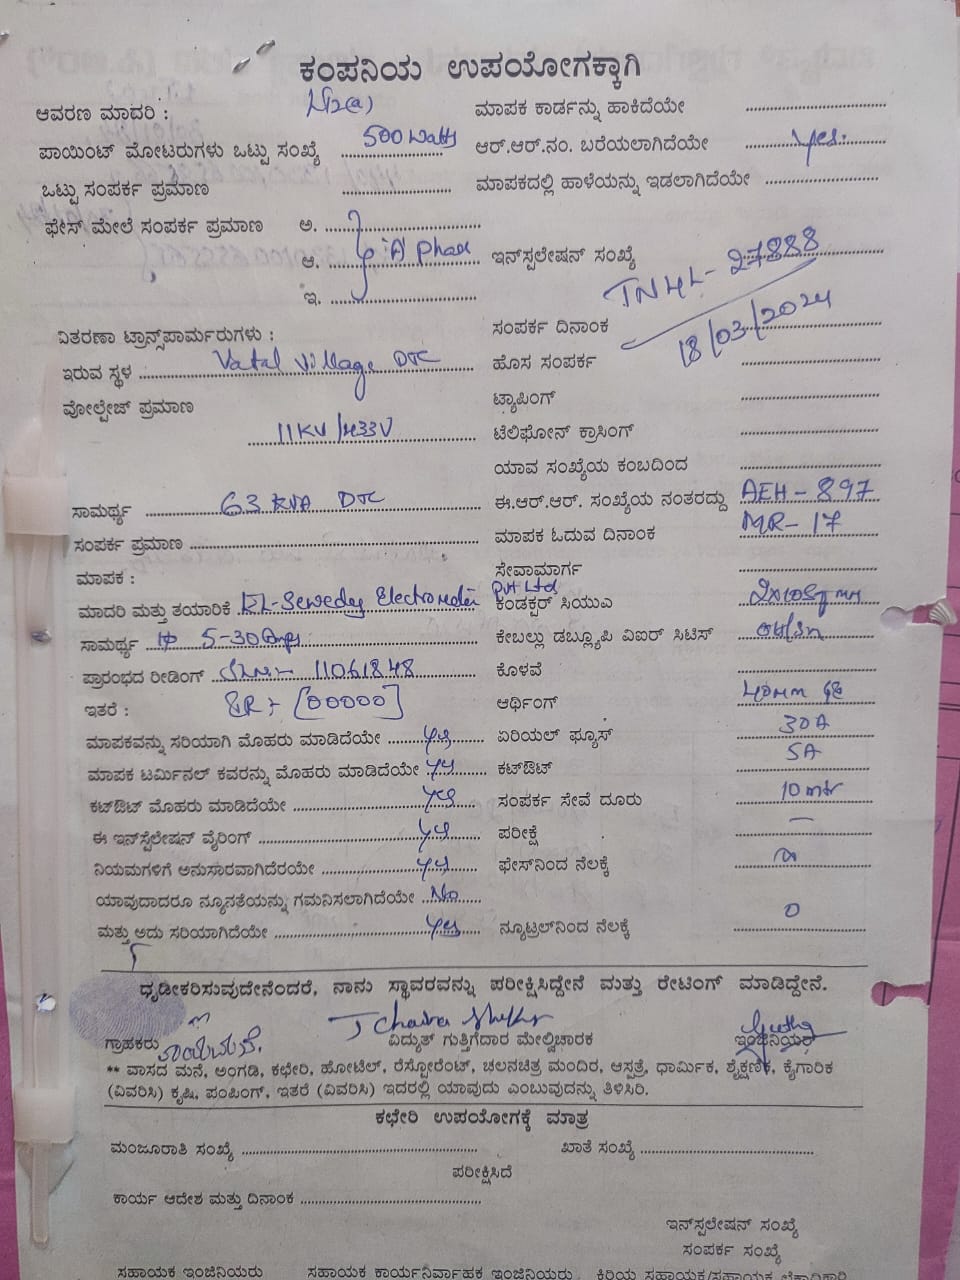 ಕಂಪನಿಯ ಉಪಯೋಗಕ್ಕಾಗಿ
ಆವರಣ ಮಾದರಿ : LT2(a) ಮಾಪಕ ಕಾರ್ಡನ್ನು ಹಾಕಿದೆಯೇ
ಪಾಯಿಂಟ್ ಮೋಟರುಗಳು ಒಟ್ಟು ಸಂಖ್ಯೆ 500 watts ಆರ್.ಆರ್.ನಂ. ಬರೆಯಲಾಗಿದೆಯೇ Yes.
ಒಟ್ಟು ಸಂಪರ್ಕ ಪ್ರಮಾಣ ಮಾಪಕದಲ್ಲಿ ಹಾಳೆಯನ್ನು ಇಡಲಾಗಿದೆಯೇ
ಫೇಸ್ ಮೇಲೆ ಸಂಪರ್ಕ ಪ್ರಮಾಣ ಅ.
ಆ. Phase ಇನ್‌ಸ್ಟಲೇಷನ್ ಸಂಖ್ಯೆ TNHL- 27888
ಇ.
ವಿತರಣಾ ಟ್ರಾನ್ಸ್‌ಪಾರ್ಮರುಗಳು : ಸಂಪರ್ಕ ದಿನಾಂಕ 18/03/2024
ಇರುವ ಸ್ಥಳ Vatal Village DTC ಹೊಸ ಸಂಪರ್ಕ
ವೋಲ್ಟೇಜ್ ಪ್ರಮಾಣ ಟ್ಯಾಪಿಂಗ್
11KV/433V ಟೆಲಿಫೋನ್ ಕ್ರಾಸಿಂಗ್
ಯಾವ ಸಂಖ್ಯೆಯ ಕಂಬದಿಂದ
ಸಾಮರ್ಥ್ಯ 63 KVA DTC ಈ.ಆರ್.ಆರ್. ಸಂಖ್ಯೆಯ ನಂತರದ್ದು AEH-897
ಸಂಪರ್ಕ ಪ್ರಮಾಣ ಮಾಪಕ ಓದುವ ದಿನಾಂಕ MR-17
ಮಾಪಕ : ಸೇವಾಮಾರ್ಗ
ಮಾದರಿ ಮತ್ತು ತಯಾರಿಕೆ EL-Sewedy Electrometer Pvt Ltd ಕಂಡಕ್ಟರ್ ಸಿಯುಎ 2x10Sqmm
ಸಾಮರ್ಥ್ಯ 1φ 5-30Amps ಕೇಬಲ್ಲು ಡಬ್ಲ್ಯೂಪಿ ವಿಐಆರ್ ಸಿಟಿಸ್
ಪ್ರಾರಂಭದ ರೀಡಿಂಗ್ 11061848 ಕೊಳವೆ
ಇತರೆ : [00000] ಆರ್ಥಿಂಗ್ 40mm GI
ಮಾಪಕವನ್ನು ಸರಿಯಾಗಿ ಮೊಹರು ಮಾಡಿದೆಯೇ Yes ಏರಿಯಲ್ ಫ್ಯೂಸ್ 30A
ಮಾಪಕ ಟರ್ಮಿನಲ್ ಕವರನ್ನು ಮೊಹರು ಮಾಡಿದೆಯೇ Yes ಕಟ್‌ಔಟ್ 5A
ಕಟ್‌ಔಟ್ ಮೊಹರು ಮಾಡಿದೆಯೇ Yes ಸಂಪರ್ಕ ಸೇವೆ ದೂರು 10 mtr
ಈ ಇನ್‌ಸ್ಟೆಲೇಷನ್ ವೈರಿಂಗ್ Yes ಪರೀಕ್ಷೆ —
ನಿಯಮಗಳಿಗೆ ಅನುಸಾರವಾಗಿದೆರಯೇ Yes ಫೇಸ್‌ನಿಂದ ನೆಲಕ್ಕೆ
ಯಾವುದಾದರೂ ನ್ಯೂನತೆಯನ್ನು ಗಮನಿಸಲಾಗಿದೆಯೇ No
ಮತ್ತು ಅದು ಸರಿಯಾಗಿದೆಯೇ Yes ನ್ಯೂಟ್ರಲ್‌ನಿಂದ ನೆಲಕ್ಕೆ 0
ಧೃಡೀಕರಿಸುವುದೇನೆಂದರೆ, ನಾನು ಸ್ಥಾವರವನ್ನು ಪರೀಕ್ಷಿಸಿದ್ದೇನೆ ಮತ್ತು ರೇಟಿಂಗ್ ಮಾಡಿದ್ದೇನೆ.
ಗ್ರಾಹಕರು ವಿದ್ಯುತ್ ಗುತ್ತಿಗೆದಾರ ಮೇಲ್ವಿಚಾರಕ ಇಂಜಿನಿಯರ್
** ವಾಸದ ಮನೆ, ಅಂಗಡಿ, ಕಛೇರಿ, ಹೋಟೆಲ್, ರೆಸ್ಟೋರೆಂಟ್, ಚಲನಚಿತ್ರ ಮಂದಿರ, ಆಸ್ಪತ್ರೆ, ಧಾರ್ಮಿಕ, ಶೈಕ್ಷಣಿಕ, ಕೈಗಾರಿಕ
(ವಿವರಿಸಿ) ಕೃಷಿ, ಪಂಪಿಂಗ್, ಇತರೆ (ವಿವರಿಸಿ) ಇದರಲ್ಲಿ ಯಾವುದು ಎಂಬುವುದನ್ನು ತಿಳಿಸಿರಿ.
ಕಛೇರಿ ಉಪಯೋಗಕ್ಕೆ ಮಾತ್ರ
ಮಂಜೂರಾತಿ ಸಂಖ್ಯೆ ಖಾತೆ ಸಂಖ್ಯೆ
ಪರೀಕ್ಷಿಸಿದೆ
ಕಾರ್ಯ ಆದೇಶ ಮತ್ತು ದಿನಾಂಕ
ಇನ್‌ಸ್ಟಲೇಷನ್ ಸಂಖ್ಯೆ
ಸಂಪರ್ಕ ಸಂಖ್ಯೆ
ಸಹಾಯಕ ಇಂಜಿನಿಯರು ಸಹಾಯಕ ಕಾರ್ಯನಿರ್ವಾಹಕ ಇಂಜಿನಿಯರು ಕಿರಿಯ ಸಹಾಯಕ/ಸಹಾಯಕ